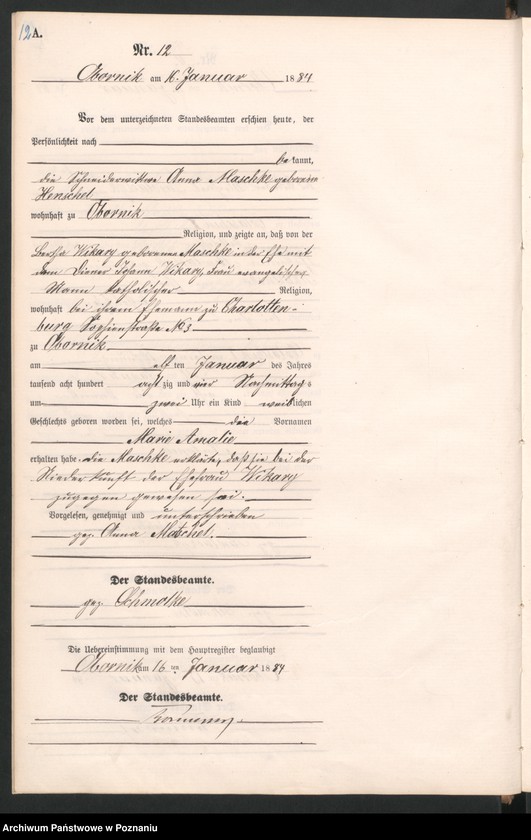 12 A.
Nr. 12
Obornik am 16. Januar 1884
Vor dem unterzeichneten Standesbeamten erschien heute, der
Persönlichkeit nach
be kannt,
die Schneiderwittwe Anna Maschke geborene
Henschel
wohnhaft zu Obornik
Religion, und zeigte an, daß von der
Bertha Wikary geborene Maschke in der Ehe mit
dem Diener Johann Wikary, Frau evangelischer
Mann katholischer Religion,
wohnhaft bei ihrem Ehemann zu Charlotten-
burg Sophienstraße No 3
zu Obornik
am elf ten Januar des Jahres
tausend acht hundert acht zig und vier Nachmittags
um zwei Uhr ein Kind weiblichen
Geschlechts geboren worden sei, welches die Vornamen
Marie Amalie
erhalten habe. Die Maschke erklärte, daß sie bei der
Niederkunft der Ehefrau Wikary
zugegen gewesen sei.
Vorgelesen, genehmigt und unterschrieben
gez. Anna
Der Standesbeamte.
gez.
Die Uebereinstimmung mit dem Hauptregister beglaubigt
Obornik am 16 ten Januar 1884
Der Standesbeamte.
Archiwum Państwowe w Poznaniu